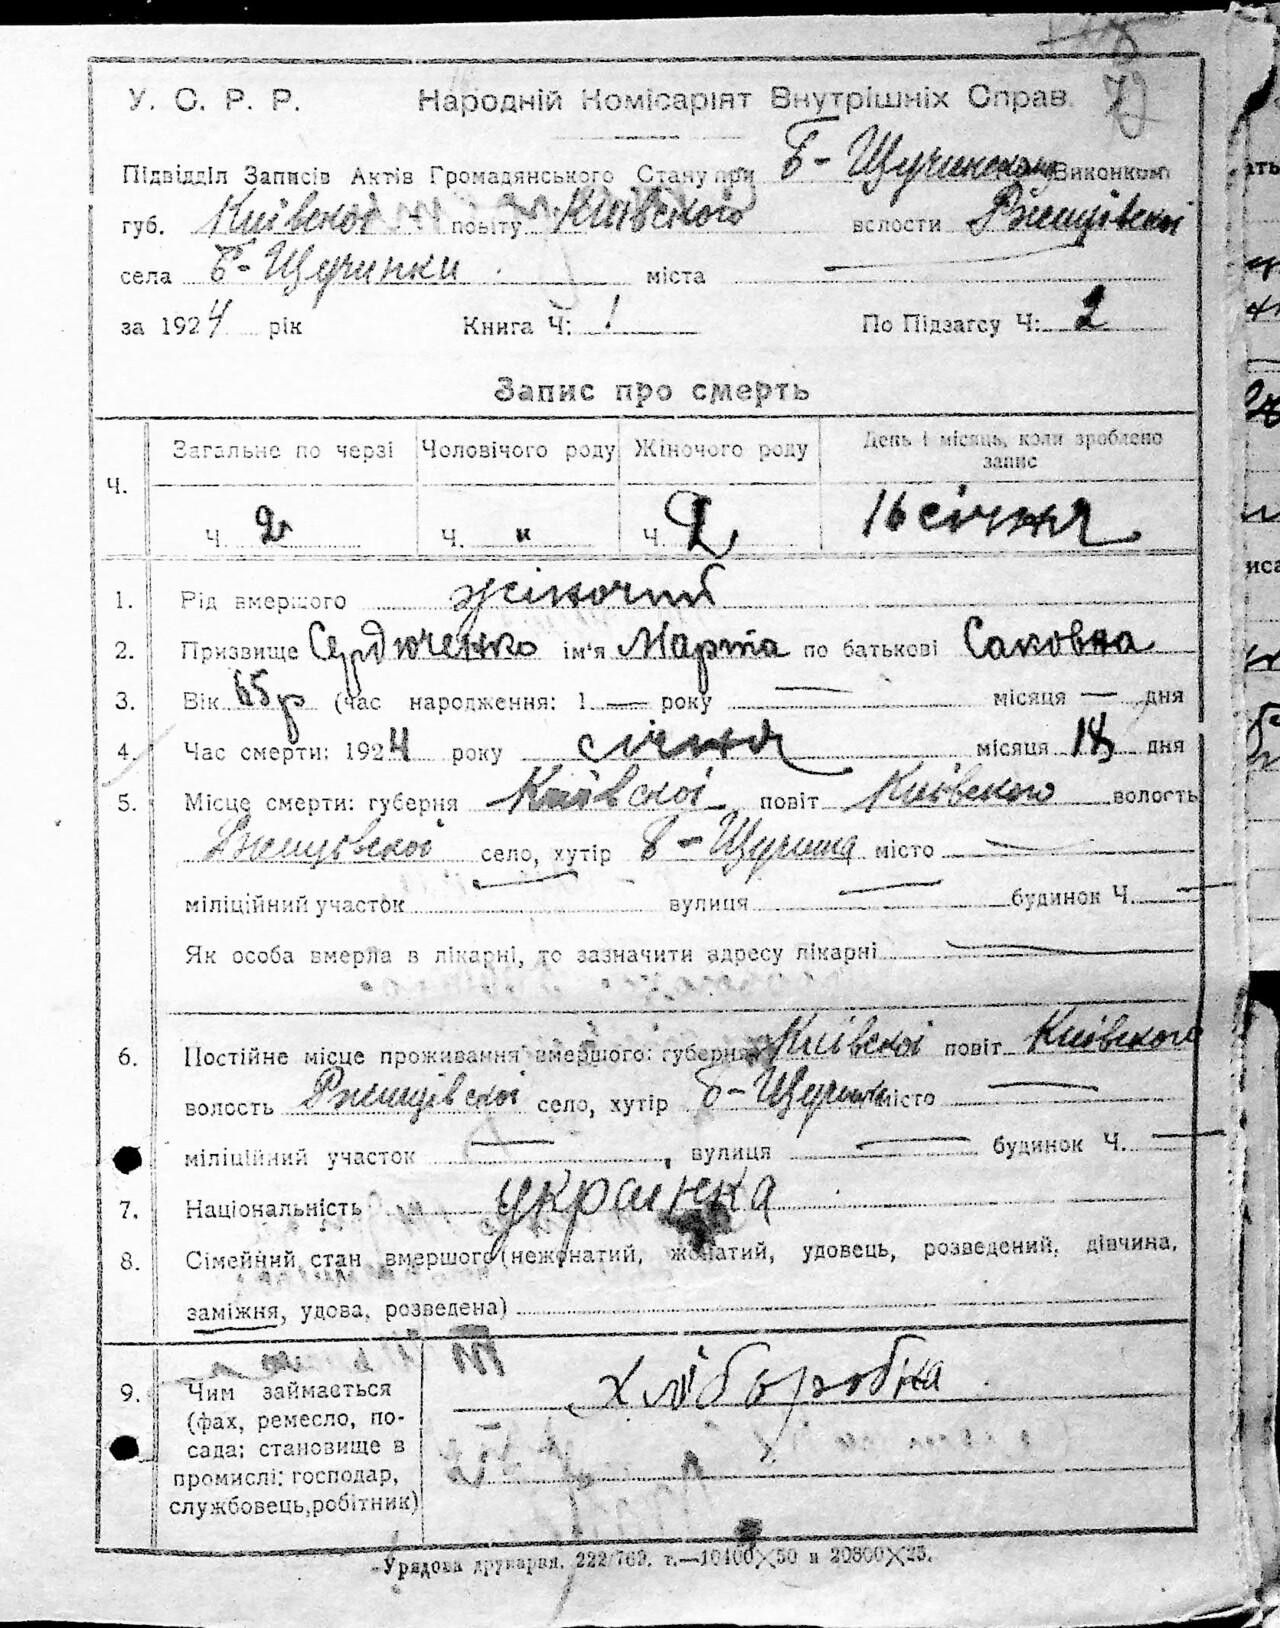 72
У. С. Р. Р. Народній Комісаріят Внутрішніх Справ.
Підвідділ Записів Актів Громадянського Стану при Б-Щучинском Виконкомі
губ. Київскої повіту Київского волости Ржищівскої
села Б-Щучинки міста
за 1924 рік Книга Ч: 1 По Підзагсу Ч: 2
Запис про смерть
Ч. Загальне по черзі Чоловічого роду Жіночого роду День і місяць, коли зроблено запис
Ч. 2 Ч. " Ч. 2 16 січня
1. Рід вмершого жіночий
2. Призвище Сердюченко ім'я Марта по батькові Саковна
3. Вік 65 р (час народження: 1 — року — місяця — дня
4. Час смерти: 1924 року січня місяця дня
5. Місце смерти: губерня Київскої повіт Київского волость
Ржищівскої село, хутір Б-Щучинка місто —
міліційний участок — вулиця — будинок Ч. —
Як особа вмерла в лікарні, то зазначити адресу лікарні —
6. Постійне місце проживання вмершого: губерня Київскої повіт Київского
волость Ржищівскої село, хутір Б-Щучинка місто —
міліційний участок —, вулиця — будинок Ч. —
7. Національність украінка
8. Сімейний стан вмершого (нежонатий, жонатий, удовець, розведений, дівчина,
заміжня, удова, розведена)
9. Чим займається хліборобка
(фах, ремесло, по-
сада; становище в
промислі: господар,
службовець, робітник)
Урядова друкарня. 222/769. т.—10400×50 и 20800×25.